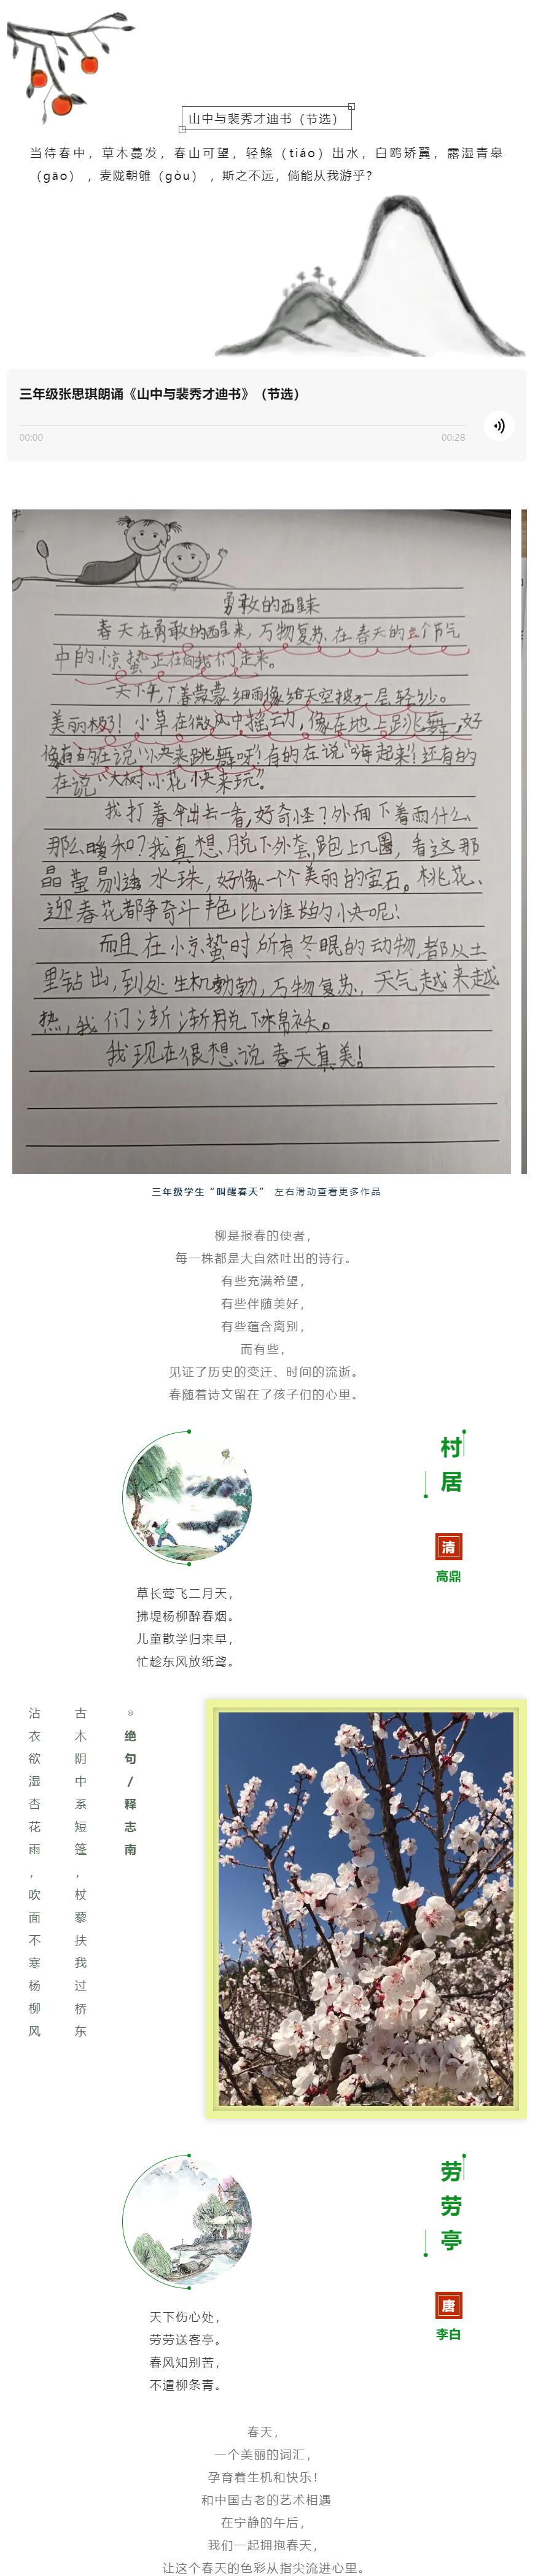 山中与裴秀才迪书（节选）
当待春中，草木蔓发，春山可望，轻鲦（tiáo）出水，白鸥矫翼，露湿青皋
（gāo），麦陇朝雊（gòu），斯之不远，倘能从我游乎?
三年级张思琪朗诵《山中与裴秀才迪书》（节选）
00:00
00:28
勇敢的
春天在勇敢的 万物复苏.在春天的立个节气
中的小惊蛰正在向我们走来。
一天下午,下着蒙蒙细雨像给天空披了一层轻纱。
美丽极了!小草在微风中摇动,像在地上跳舞,好
像有的在说“快来跳舞呀”有的在说“嗨起来!还有的
在说“大树小花快来玩”。
我打着伞出去一看,好奇怪?外面下着雨什么
那么暖和?我真想脱下外套,跑上几圈,看这那
晶莹剔透水珠,好像一个个美丽的宝石。桃花、
迎春花都争奇斗艳比谁长的快呢!
而且在小惊蛰时所有冬眠的动物,都从土
里钻出,到处生机勃勃,万物复苏,天气越来越
热,我们渐渐脱下棉袄。
我现在很想说春天真美!
三年级学生“叫醒春天” 左右滑动查看更多作品
柳是报春的使者，
每一株都是大自然吐出的诗行。
有些充满希望，
有些伴随美好，
有些蕴含离别，
而有些，
见证了历史的变迁、时间的流逝。
春随着诗文留在了孩子们的心里。
村居
清
高鼎
草长莺飞二月天，
拂堤杨柳醉春烟。
儿童散学归来早，
忙趁东风放纸鸢。
绝句/释志南
古木阴中系短篷，杖藜扶我过桥东
沾衣欲湿杏花雨，吹面不寒杨柳风
劳劳亭
唐
李白
天下伤心处，
劳劳送客亭。
春风知别苦，
不遣柳条青。
春天，
一个美丽的词汇，
孕育着生机和快乐!
和中国古老的艺术相遇
在宁静的午后，
我们一起拥抱春天，
让这个春天的色彩从指尖流进心里。